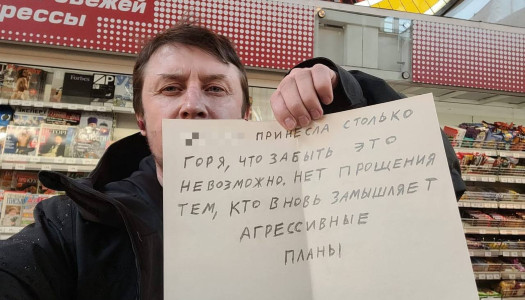 свежей
прессы
Forbes
ЭКСПЕРТ
ПРИНЕСЛА СТОЛЬКО
ГОРЯ, ЧТО ЗАБЫТЬ ЭТО
НЕВОЗМОЖНО. НЕТ ПРОЩЕНИЯ
ТЕМ, КТО ВНОВЬ ЗАМЫШЛЯЕТ
АГРЕССИВНЫЕ
ПЛАНЫ